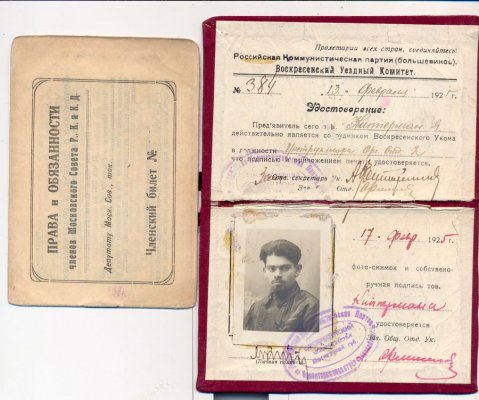 ПРАВА и ОБЯЗАННОСТИ
членов Московского Совета Р., К. и К. Д.
Депутату Моск. Сов., тов.
Членский билет №
Пролетарии всех стран, соединяйтесь!
Российская Коммунистическая партия (большевиков).
Воскресенский Уездный Комитет.
№ 384 13 февраля 1925 г.
Удостоверение:
Пред'явитель сего т.
действительно является сотрудником Воскресенского Укома
в должности Инструктора Орг. Отд.
что подписью и приложением печати удостоверяется.
Отв. секретарь Ук.
Зав. Отд.
17 февр. 1925 г.
фото-снимок и собствено-
ручная подпись тов.
Киттермана
удостоверяется
Зав. Общ. Отд. Ук.